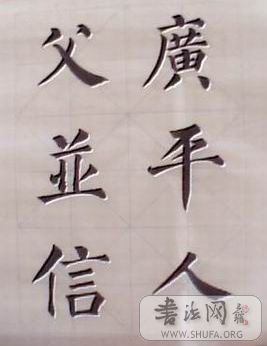 廣平人
父並信
書法网
WWW.SHUFA.ORG